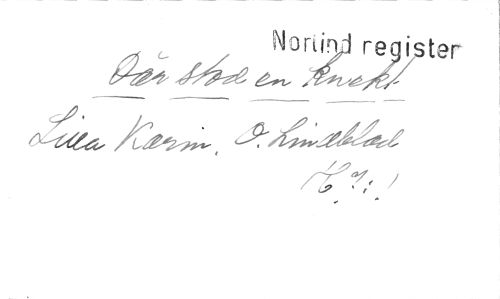 Norlind register
Där stod en knekt.
Lilla Karin. O. Lindblad